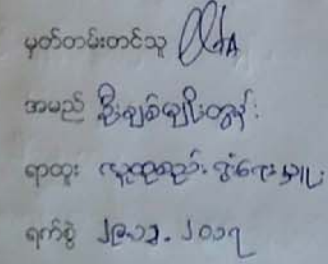 မှတ်တမ်းတင်သူ
အမည် ဦးချစ်မျိုးထွန်း
ရာထူး လူထုစည်းရုံးရေးမှူး
ရက်စွဲ ၂၉.၁၂.၂၀၁၇